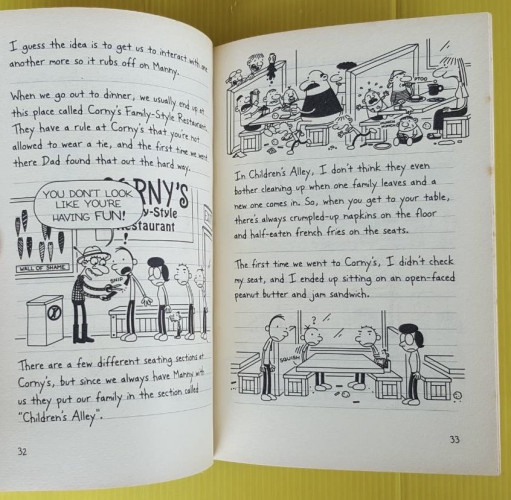 I guess the idea is to get us to interact with one
another more so it rubs off on Manny.
When we go out to dinner, we usually end up at
this place called Corny's Family-Style Restaurant.
They have a rule at Corny's that you're not
allowed to wear a tie, and the first time we went
there Dad found that out the hard way.
YOU DON'T LOOK
LIKE YOU'RE
HAVING FUN!
RNY'S
y-Style
estaurant
WALL OF SHAME
SNIP
There are a few different seating sections at
Corny's, but since we always have Manny with
us they put our family in the section called
"Children's Alley".
32
PTOO
In Children's Alley, I don't think they even
bother cleaning up when one family leaves and a
new one comes in. So, when you get to your table,
there's always crumpled-up napkins on the floor
and half-eaten french fries on the seats.
The first time we went to Corny's, I didn't check
my seat, and I ended up sitting on an open-faced
peanut butter and jam sandwich.
?
SQUISH
33